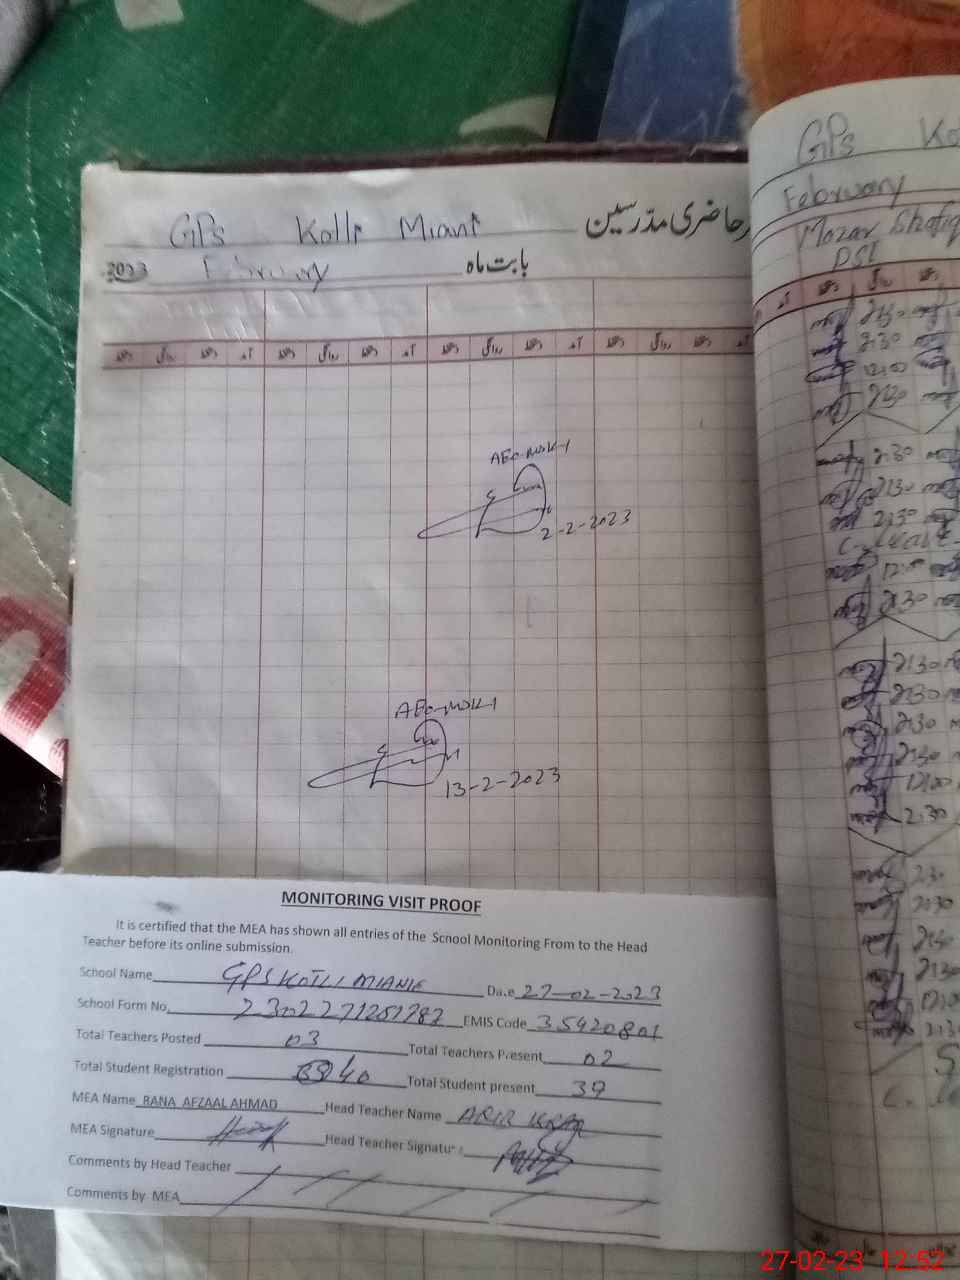 GPS Kotli Miani حاضری مدرسین
2023 February بابت ماہ
دستخط روانگی دستخط آمد دستخط روانگی دستخط آمد دستخط روانگی دستخط آمد دستخط روانگی دستخط آمد
AEO-MDK-1
2-2-2023
AEO-MDK-1
13-2-2023
MONITORING VISIT PROOF
It is certified that the MEA has shown all entries of the School Monitoring From to the Head
Teacher before its online submission.
School Name GPS KOTLI MIANIE Date 27-02-2023
School Form No. EMIS Code 35420801
Total Teachers Posted 03 Total Teachers Present 02
Total Student Registration 40 Total Student present 39
MEA Name RANA AFZAAL AHMAD Head Teacher Name
MEA Signature Head Teacher Signature
Comments by Head Teacher
Comments by MEA
GPS Ko
February
Shafiq
PST
آمد دستخط روانگی دستخط
2:30
2:30
12:00
2:30
2:30
2:30
2:30
C. Leave
12:00
2:30
2:30
2:30
2:30
2:30
12:00
2:30
2:30
2:30
2:30
2:30
12:00
2:30
27-02-23 12:52